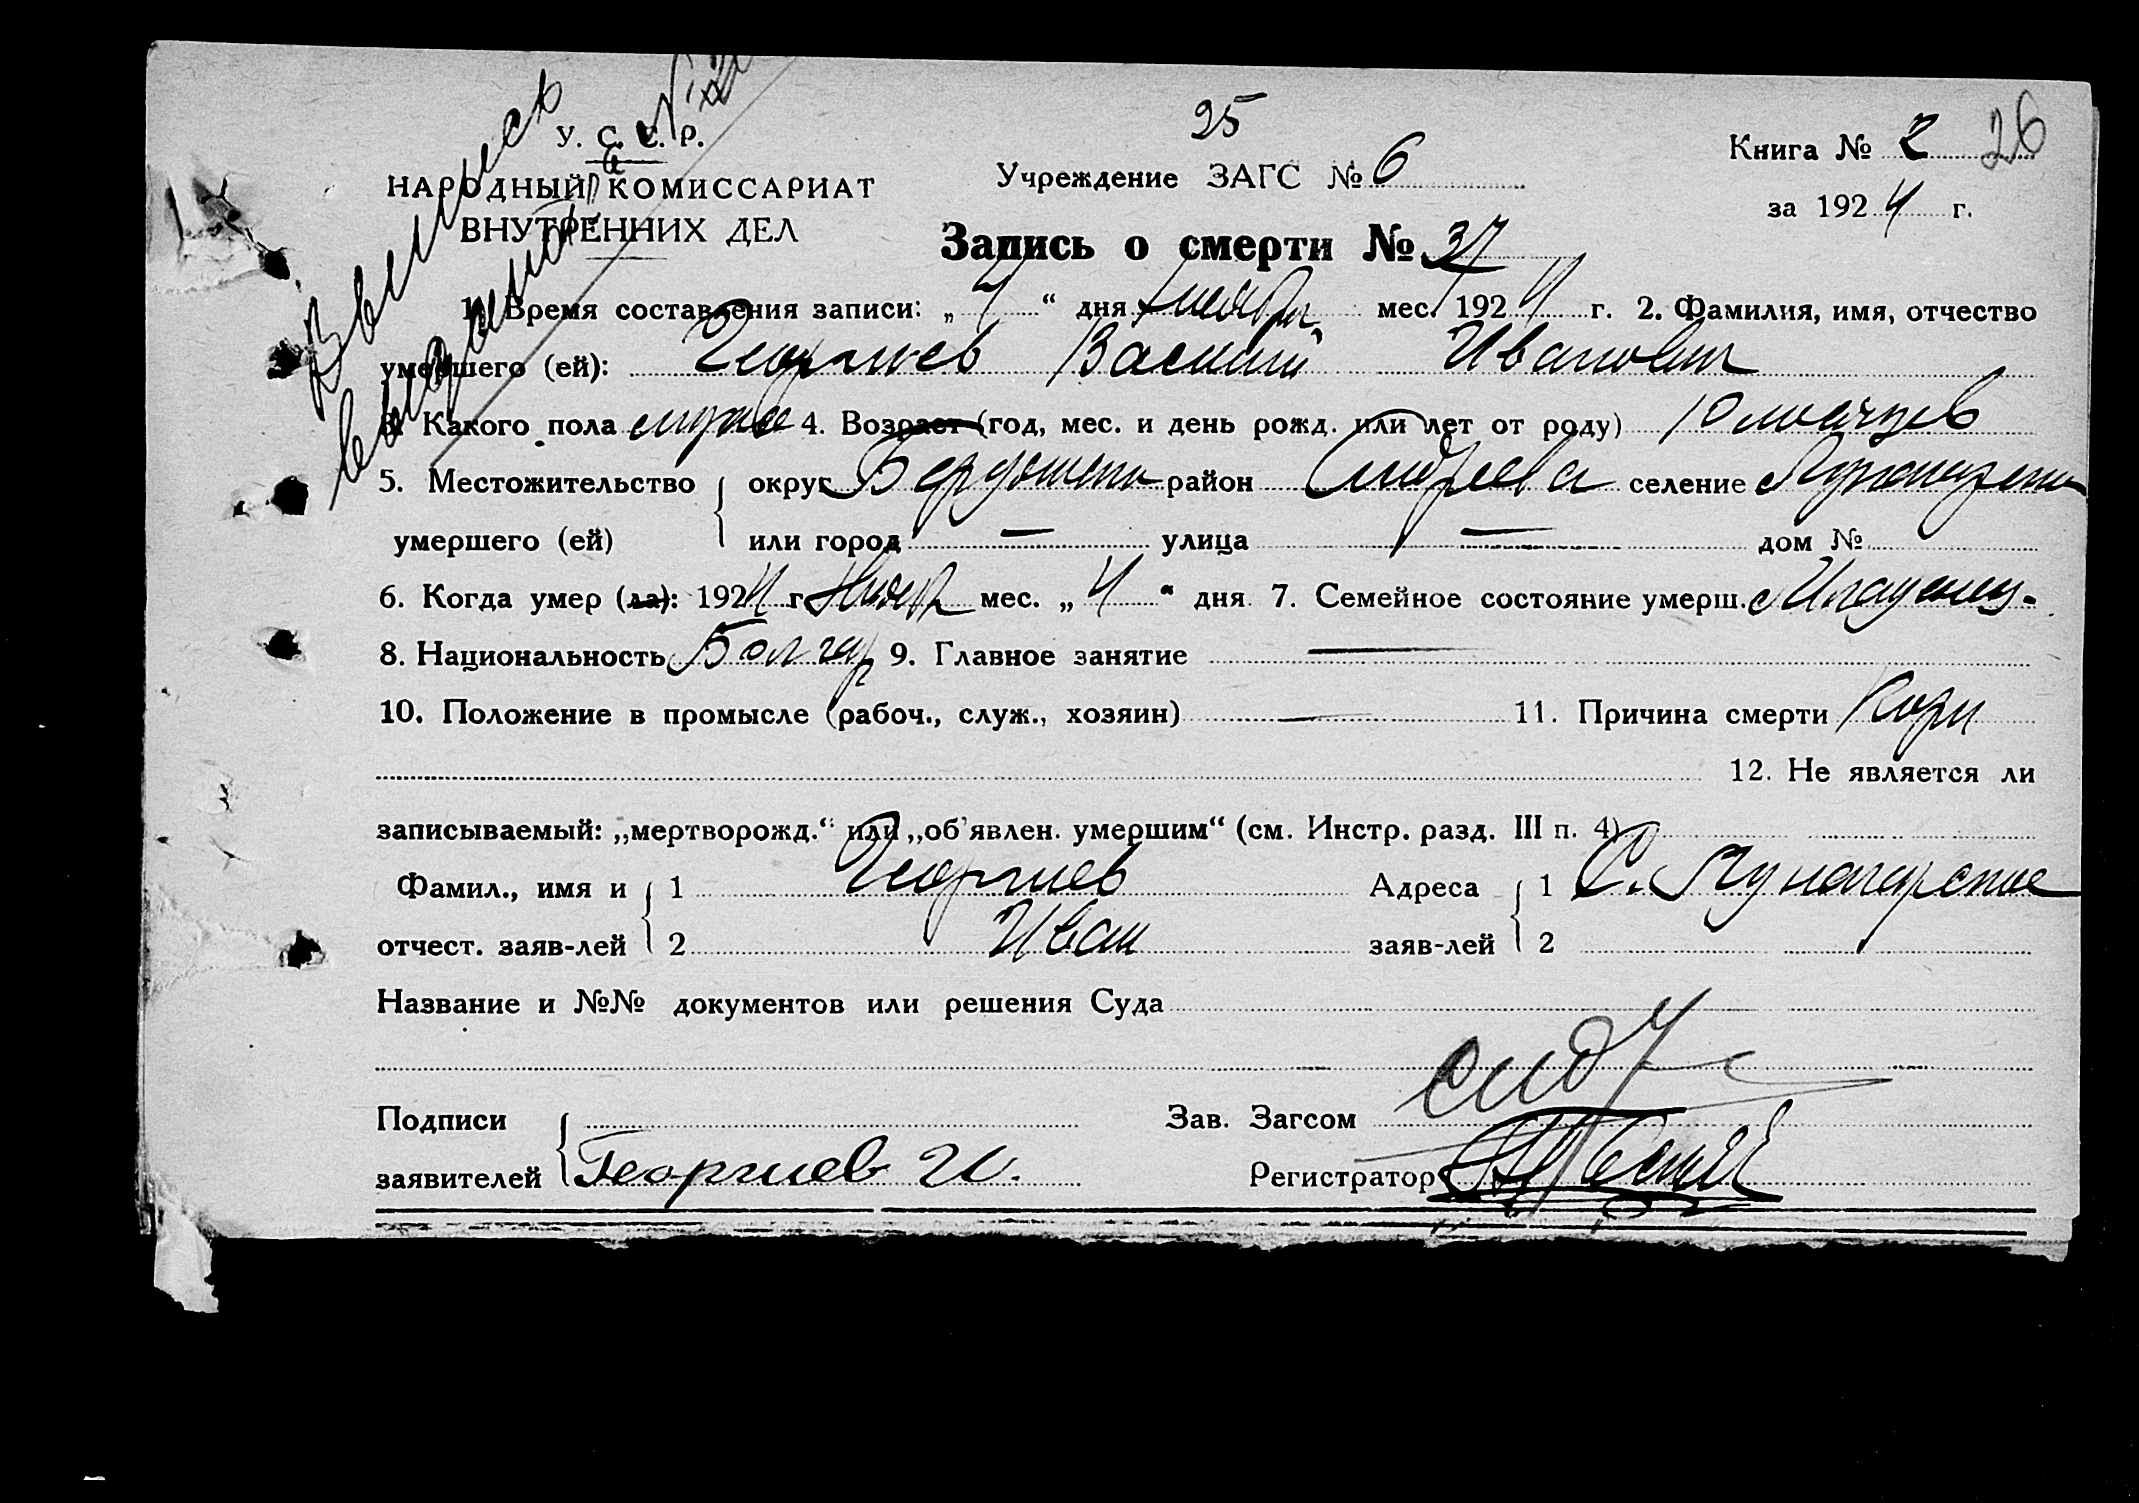 Выписка
выдана
25
26
У. С. С. Р.
НАРОДНЫЙ КОМИССАРИАТ
ВНУТРЕННИХ ДЕЛ
Учреждение ЗАГС № 6
Книга № 2
за 1924 г.
Запись о смерти № 37
1. Время составления записи: „4“ дня ноября мес. 1924 г. 2. Фамилия, имя, отчество
умершего (ей): Георгиев Василий Иванович
3. Какого пола мужс 4. Возраст (год, мес. и день рожд. или лет от роду) 10 месяцев
5. Местожительство округ Бердянск район Андреева селение
умершего (ей) или город — улица — дом №
6. Когда умер (ла): 1924 г. Ноября мес. „4“ дня 7. Семейное состояние умерш. Младенец.
8. Национальность Болгар 9. Главное занятие —
10. Положение в промысле (рабоч., служ., хозяин) — 11. Причина смерти Кори
12. Не является ли
записываемый: „мертворожд.“ или „об'явлен. умершим“ (см. Инстр. разд. III п. 4)
Фамил., имя и 1 Георгиев Адреса 1 С. Луначарское
отчест. заяв-лей 2 Иван заяв-лей 2
Название и №№ документов или решения Суда
Подписи Зав. Загсом
заявителей Георгиев И. Регистратор